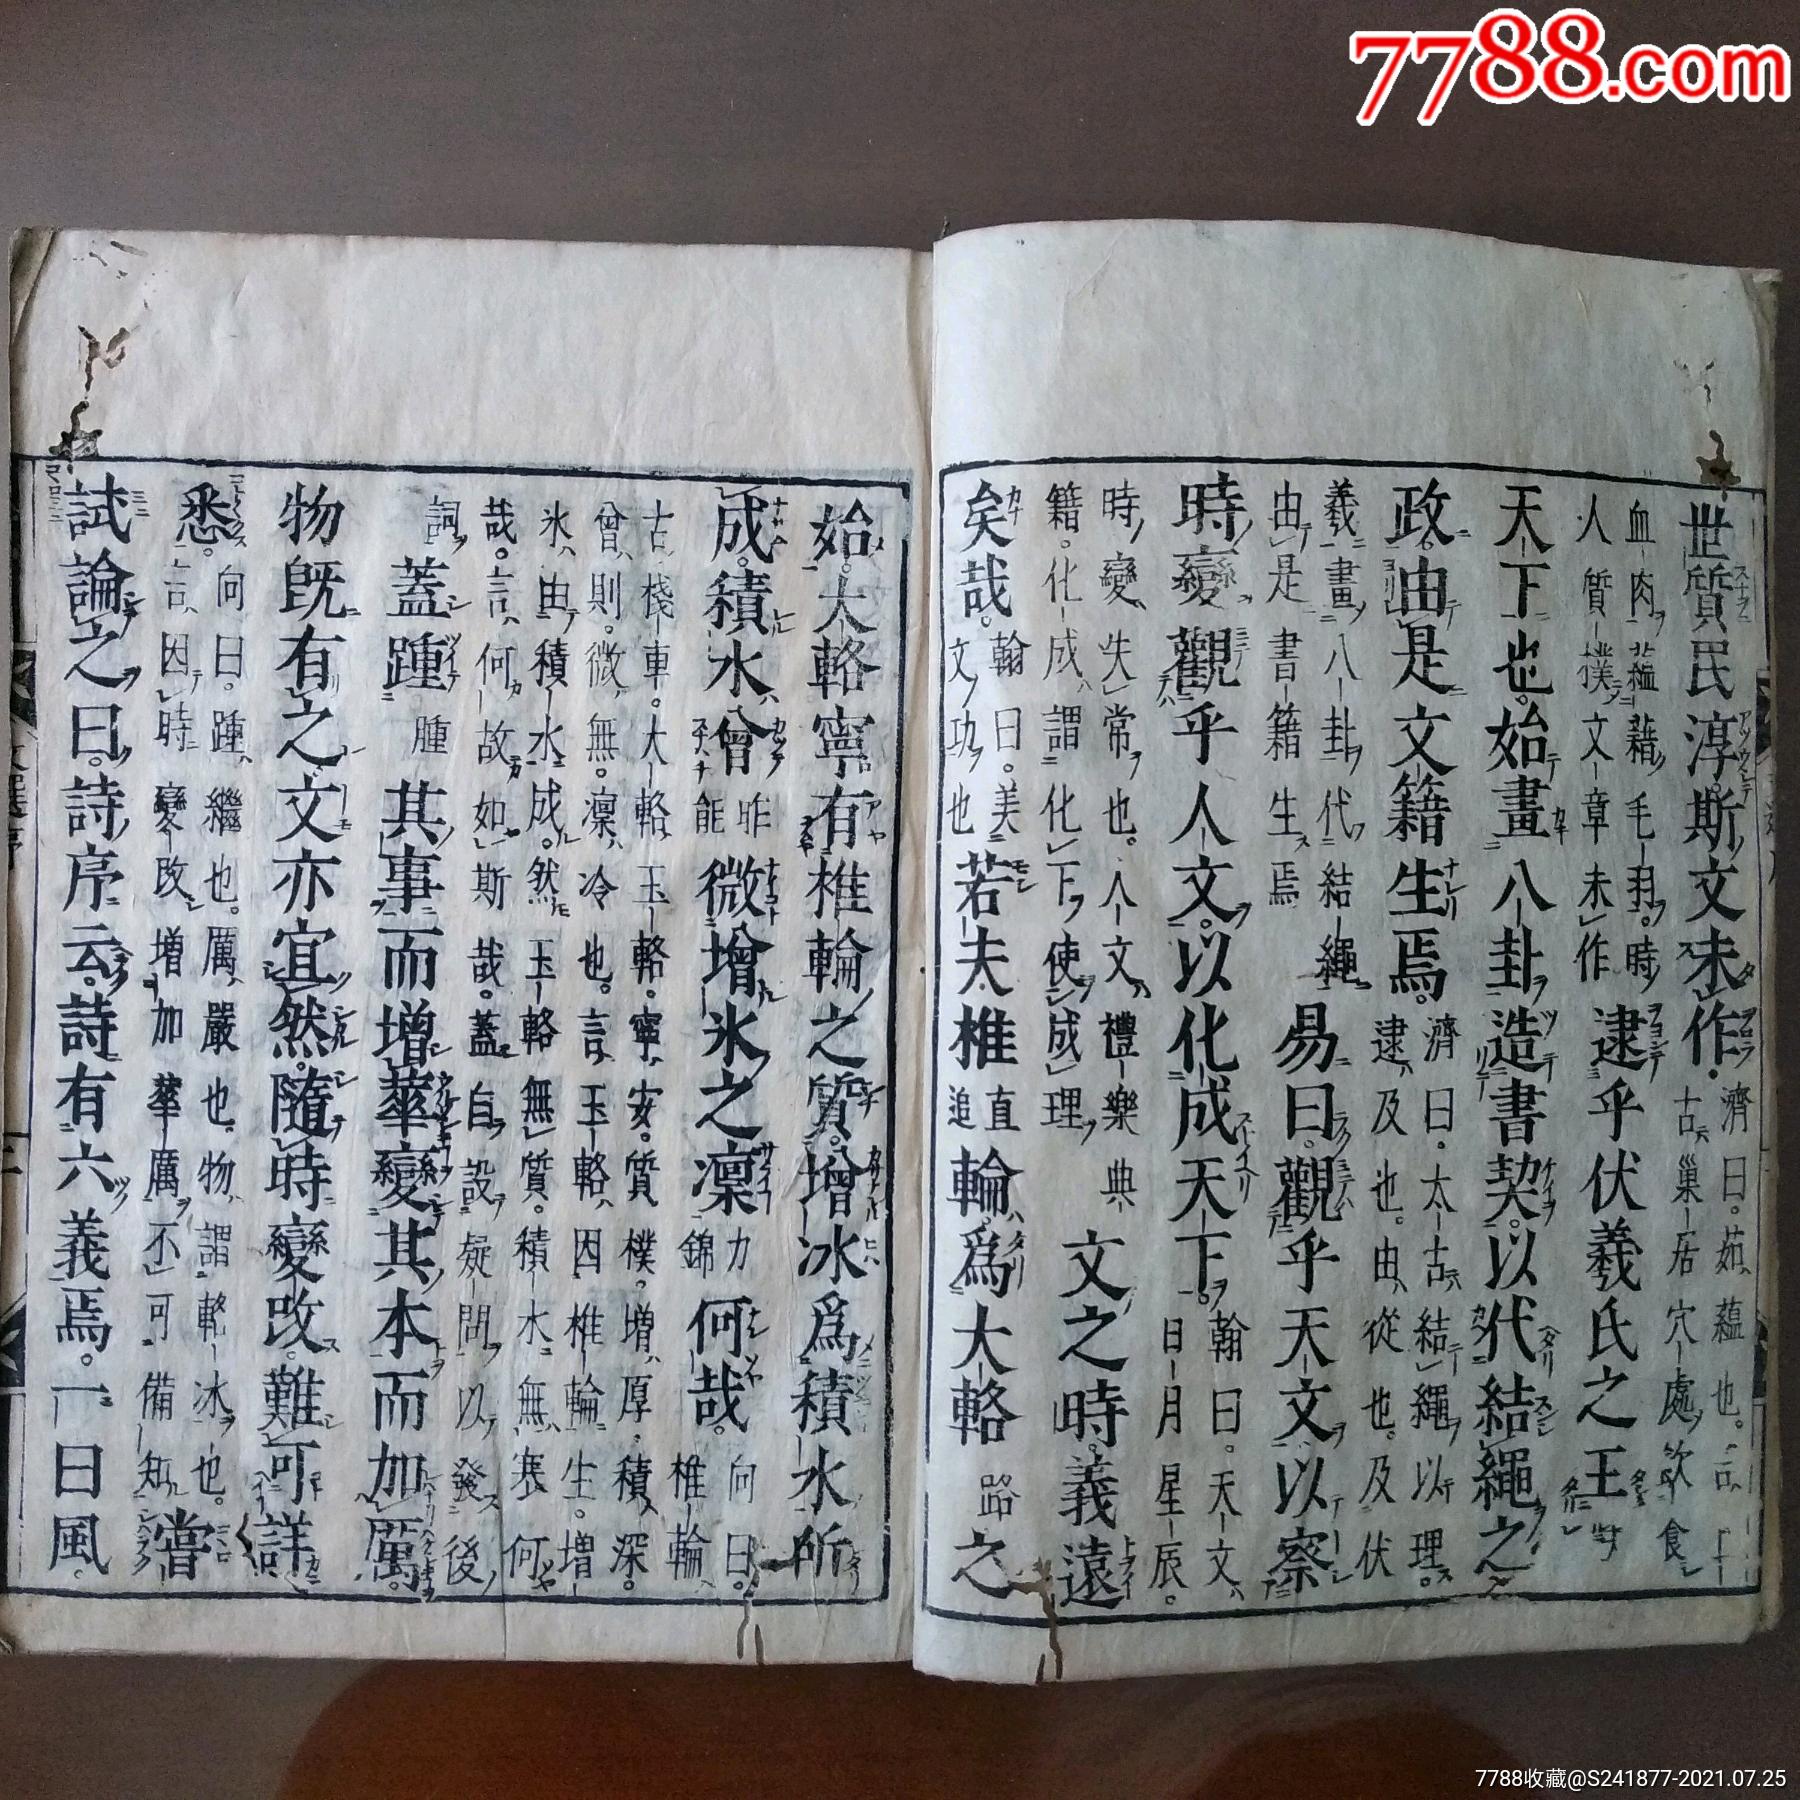 7788.com
世質民淳斯文未作濟曰茹蘊也言上古巢居穴處飲食
血肉蘊藉毛羽時人質樸文章未作逮乎伏羲氏之王
天下也始畫八卦造書契以代結繩之
政由是文籍生焉濟曰太古結繩以理逮及也由從也及伏
羲畫八卦代結繩由是書籍生焉易曰觀乎天文以察
時變觀乎人文以化成天下翰曰天文日月星辰
時變失常也人文禮樂典籍化成謂化下使成理文之時義遠
矣哉翰曰美文功也若夫椎直追輪爲大輅路之
始大輅寧有椎輪之質增冰爲積水所
成積水曾昨能微增氷之凜力錦何哉向曰椎輪
古棧車大輅玉輅寧安質樸增厚積深曾則微無凜冷也言玉輅因椎輪生增
氷由積水成然玉輅無質積水無寒何哉言何故如斯哉蓋自設疑問以發後
詞蓋踵腫其事而增華變其本而加厲
物既有之文亦宜然隨時變改難可詳
悉向曰踵繼也厲嚴也物謂輅冰也言因時變改增加華厲不可備知嘗
試論之曰詩序云詩有六義焉一曰風
文選序
7788收藏@S241877-2021.07.25